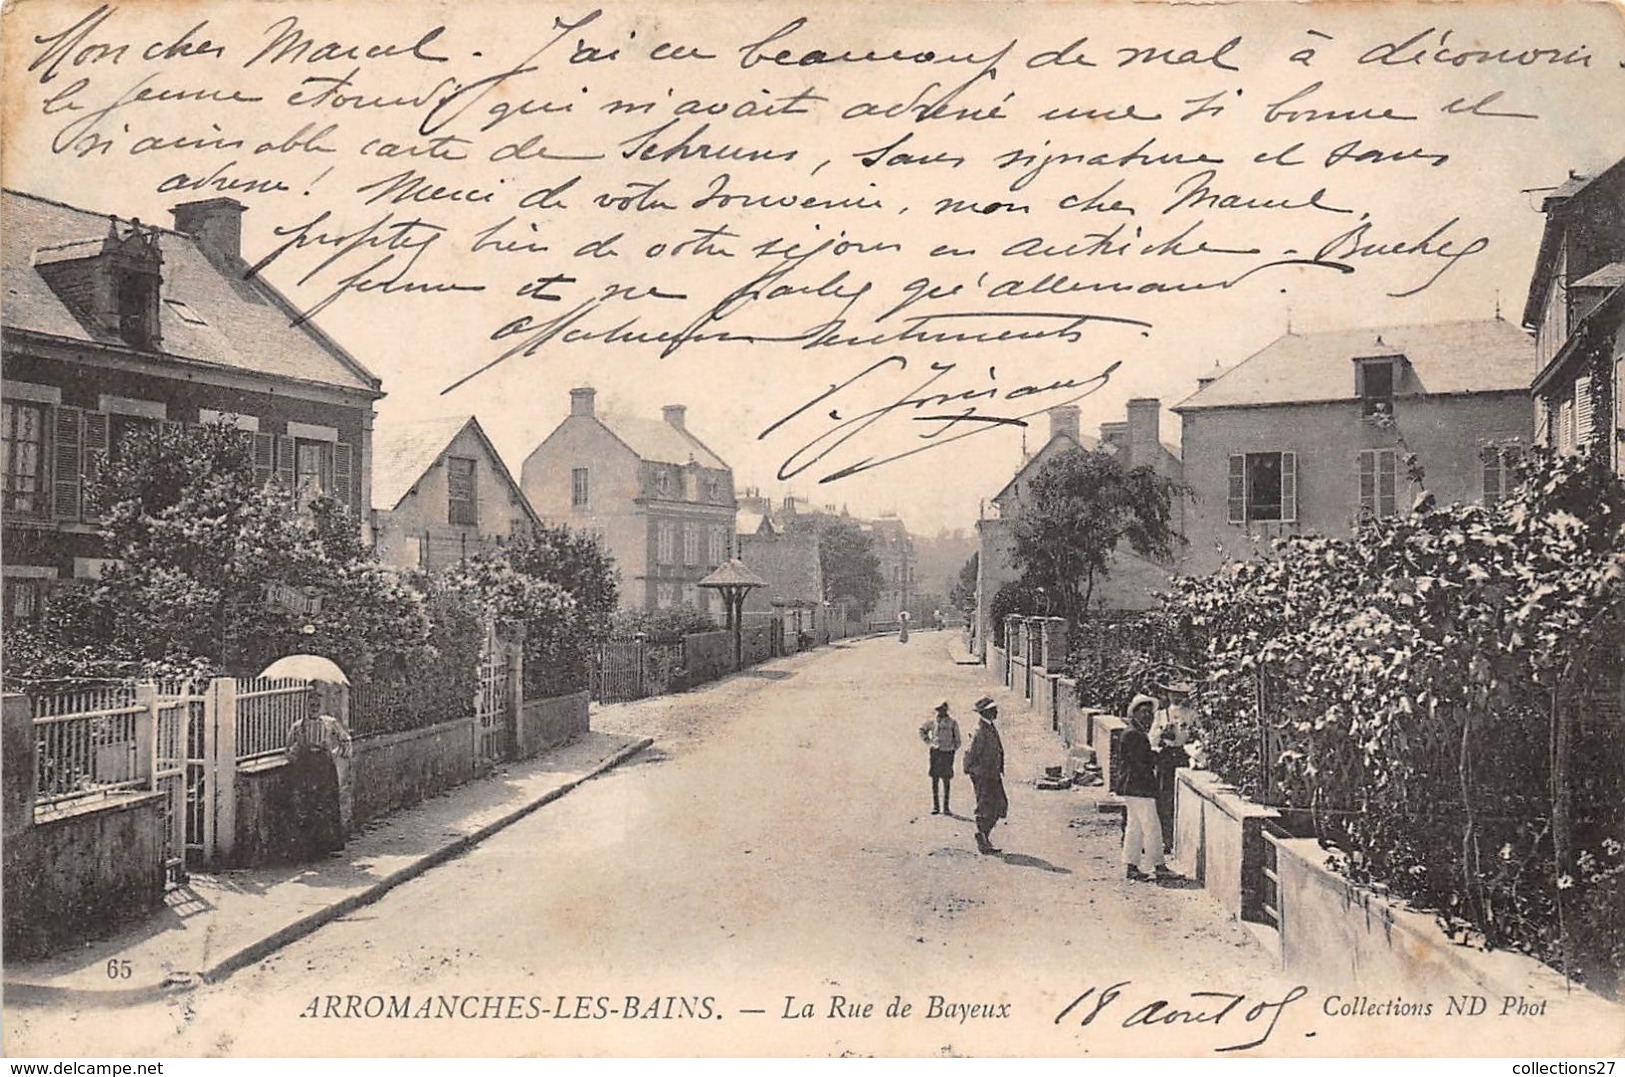 Mon cher Marcel. J'ai eu beaucoup de mal à découvrir
le jeune étourdi qui m'avait adressé une si bonne et
si aimable carte de Schruns, sans signature et sans
adresse! Merci de votre souvenir, mon cher Marcel,
profitez bien de votre séjour en Autriche. Buchez
ferme et ne parlez qu'allemand.
Affectueux sentiments.
65
ARROMANCHES-LES-BAINS. — La Rue de Bayeux
18 août 05.
Collections ND Phot
collections27